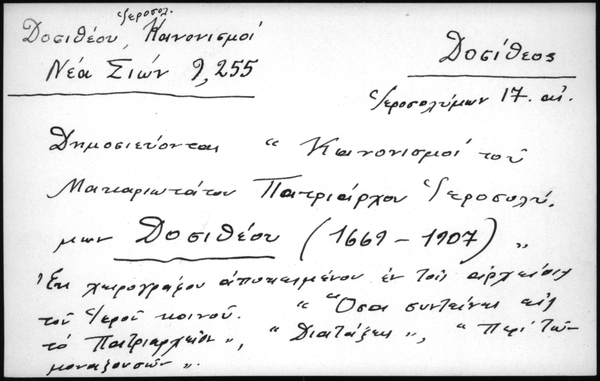 Δοσιθέου, Ἱεροσολ. Κανονισμοί
Νέα Σιών 9,255
Δοσίθεος
Ἱεροσολύμων 17. αἰ.
Δημοσιεύονται " Κανονισμοί τοῦ
Μακαριωτάτου Πατριάρχου Ἱεροσολύ-
μων Δοσιθέου (1669-1907) "
Ἐκ χειρογράφου ἀποκειμένου ἐν τοῖς ἀρχείοις
τοῦ Ἱεροῦ κοινοῦ. " Ὅσα συντείνει εἰς
τό Πατριαρχεῖον ", " Διατάξεις ", " Περί τῶν
μοναζουσῶν ".